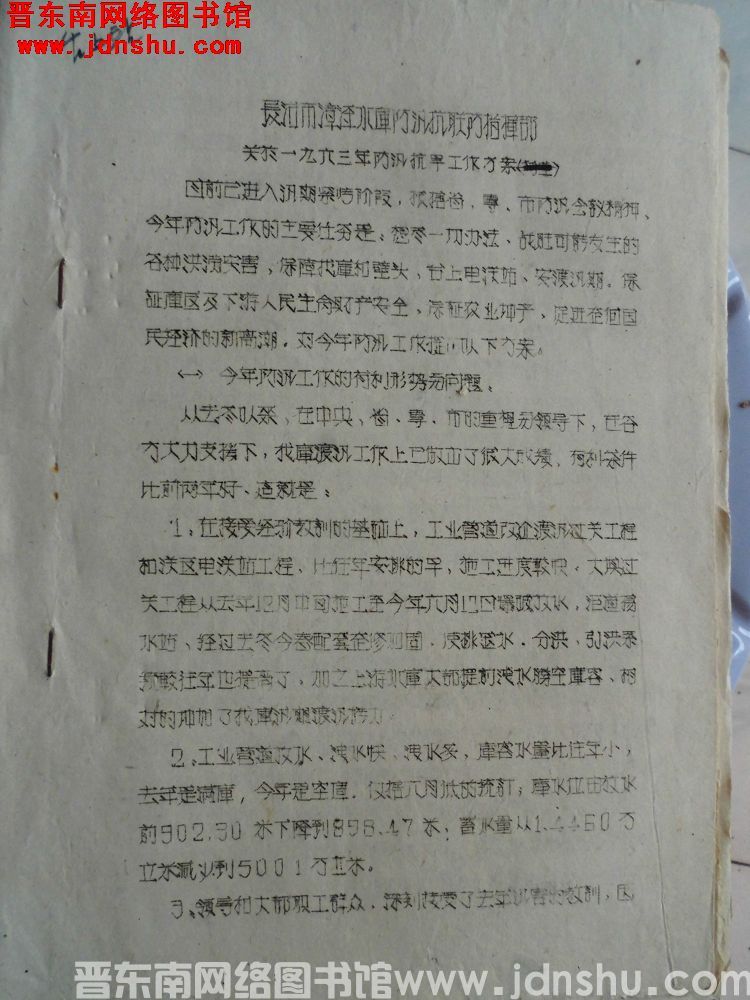 晋东南网络图书馆
www.jdnshu.com
長治市漳泽水庫防汛抗联防指揮部
关于一九六三年防汛抗旱工作方案
目前已进入汛期紧要阶段，根据省、專、市防汛会议精神、
今年防汛工作的主要任务是：想尽一切办法、战胜可能发生的
各种洪涝灾害，保障我庫和壩头、台上电渼站、安渡汛期。保
証庫区及下游人民生命財产安全、保証农业坤产、促进全個国
民经济的新高潮。对今年防汛工作提出以下方案。
㈠ 今年防汛工作的有利形势与问题：
从去冬以来，在中央、省、專、市的重視与领导下，在各
方大力支援下，我庫渡汛工作上已做出了很大成績，有利条件
比前两年好、这就是：
1、在接受经驗教訓的基础上，工业管道改企渡汛过关工程
和渼区电渼站工程、比往年安排的早，施工进度較快。大坝过
关工程从去年12月中旬施工至今年六月12日爆破放水，
水站、经过去冬今春配套整修加固，废排退水。分洪、引洪
較往年也提高了，加之上游水庫大部提前洩水騰空庫容、相
对的坤加了我庫汛期渡汛
2、工业管道放水、洩水快、洩水多，庫容水量比往年小，
去年是满庫，今年是空庫。仅据六月底的統計；庫水位由放水
前902.30米下降到898.47米，蓄水量从1.4460万
立米减少到5001万立米。
3、领导和大部职工群众，深刻接受了去年汛害的教訓，因
晋东南网络图书馆www.jdnshu.com